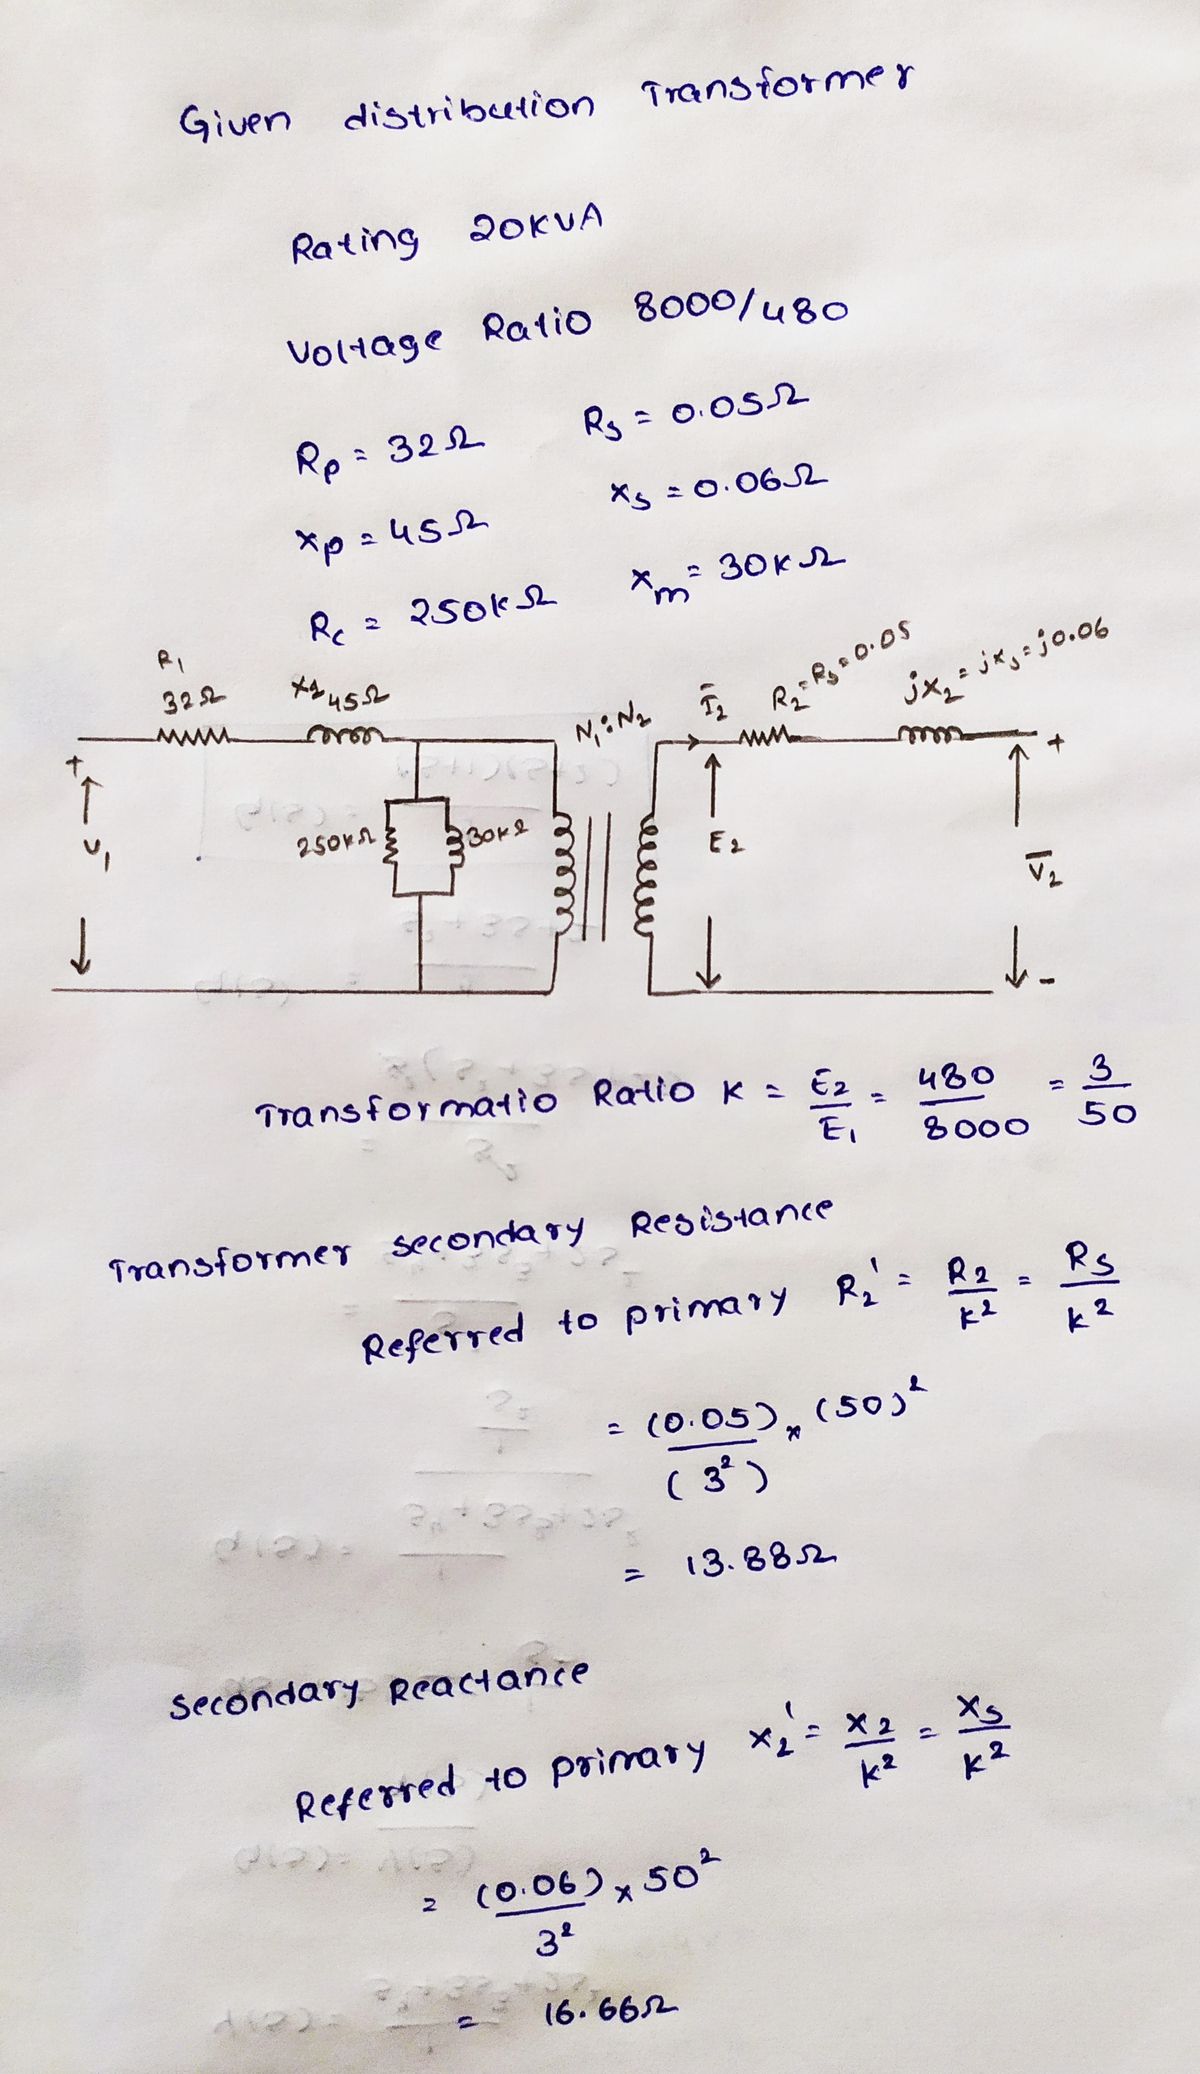 Given distribution Transformer
Rating 20KVA
Voltage Ratio 8000/480
Rp = 32Ω Rs = 0.05Ω
Xp = 45Ω Xs = 0.06Ω
Rc = 250kΩ Xm = 30kΩ
R1 32Ω X1 45Ω N1:N2 I̅2 R2=Rs=0.05 jX2=jXs=j0.06
+ V1 250kΩ 30kΩ E2 V̅2 + -
Transformatio Ratio K = E2/E1 = 480/8000 = 3/50
Transformer secondary Resistance
Referred to primary R2' = R2/k² = Rs/k²
= (0.05)/(3²) × (50)²
= 13.88Ω
Secondary Reactance
Referred to primary X2' = X2/k² = Xs/k²
= (0.06)/3² × 50²
= 16.66Ω